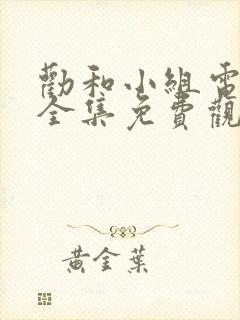 勸和小組電
全集免費觀
黃金葉